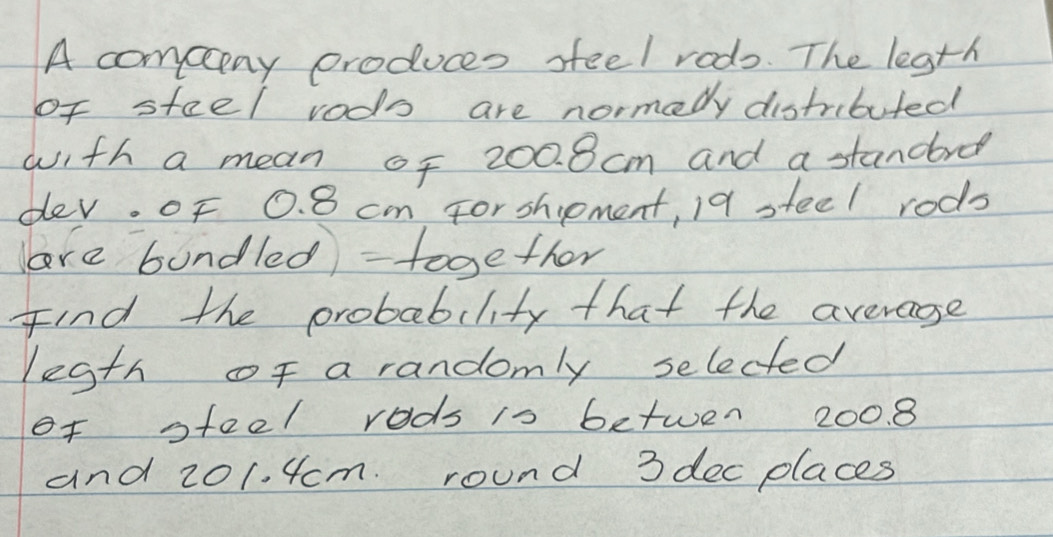 A company produces steel rods. The legth
of steel rods are normally distributed
with a mean of 200.8cm and a standard
dev. of 0.8 cm for shipment, 19 steel rods
are bundled) - together
Find the probability that the average
legth of a randomly selected
of steel rods is betwen 200.8
and 201.4cm. round 3 dec places